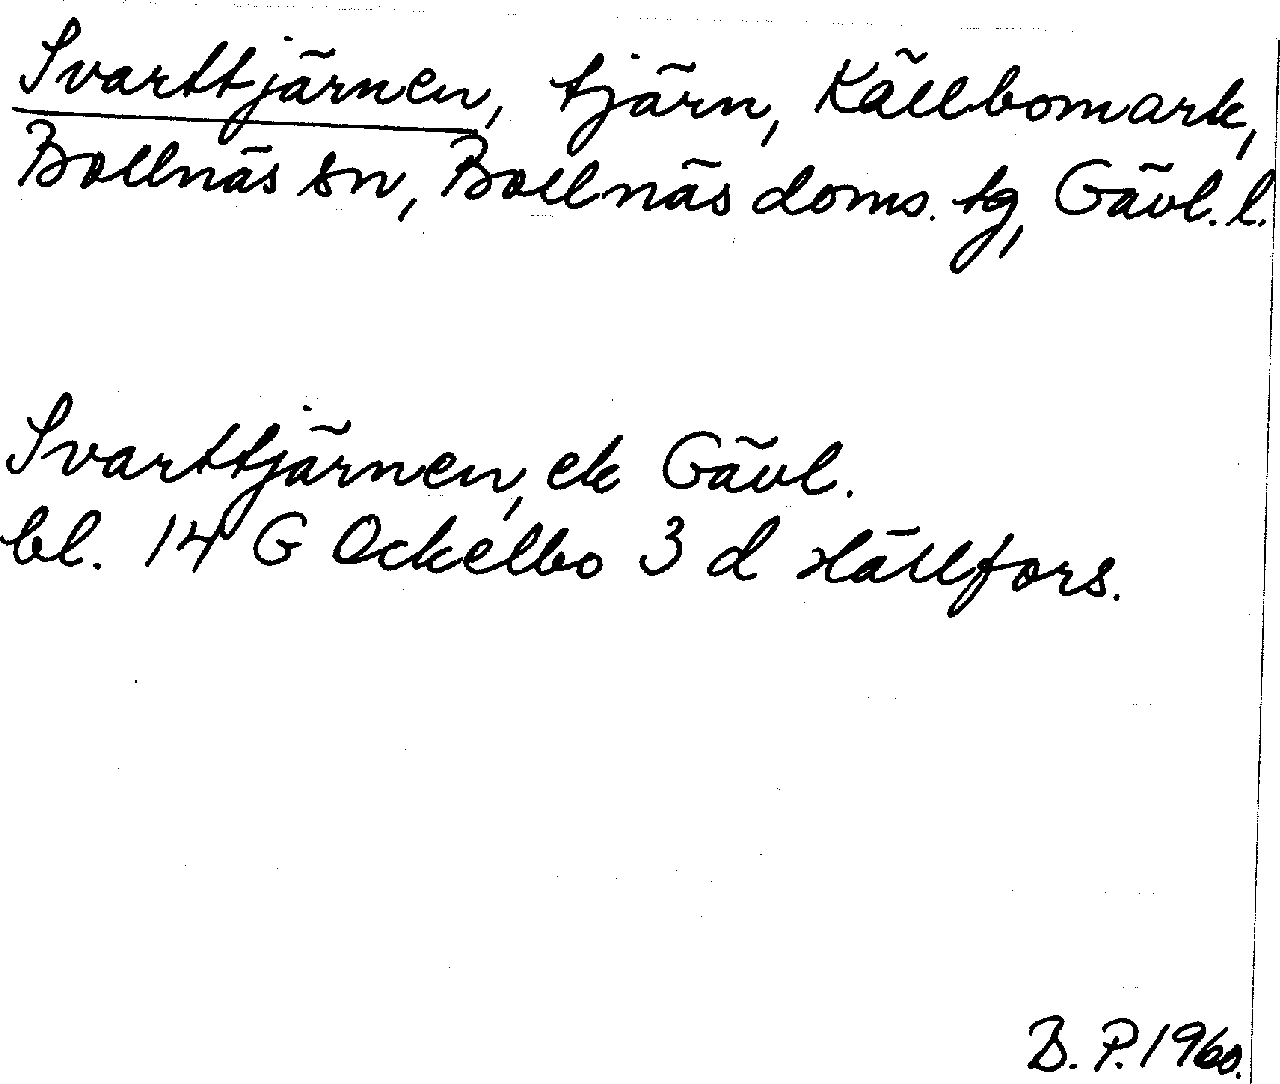 Svarttjärnen, tjärn, Källbomark,
Bollnäs sn, Bollnäs doms. tg, Gävl. l.
Svarttjärnen, ek Gävl.
bl. 14 G Ockelbo 3 d Hällfors.
B. P. 1960.